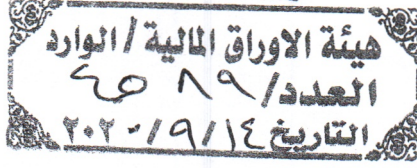 هيئة الاوراق المالية / الوارد
العدد / ٨٩
التاريخ ١٤ / ٩ / ٢٠٢٠